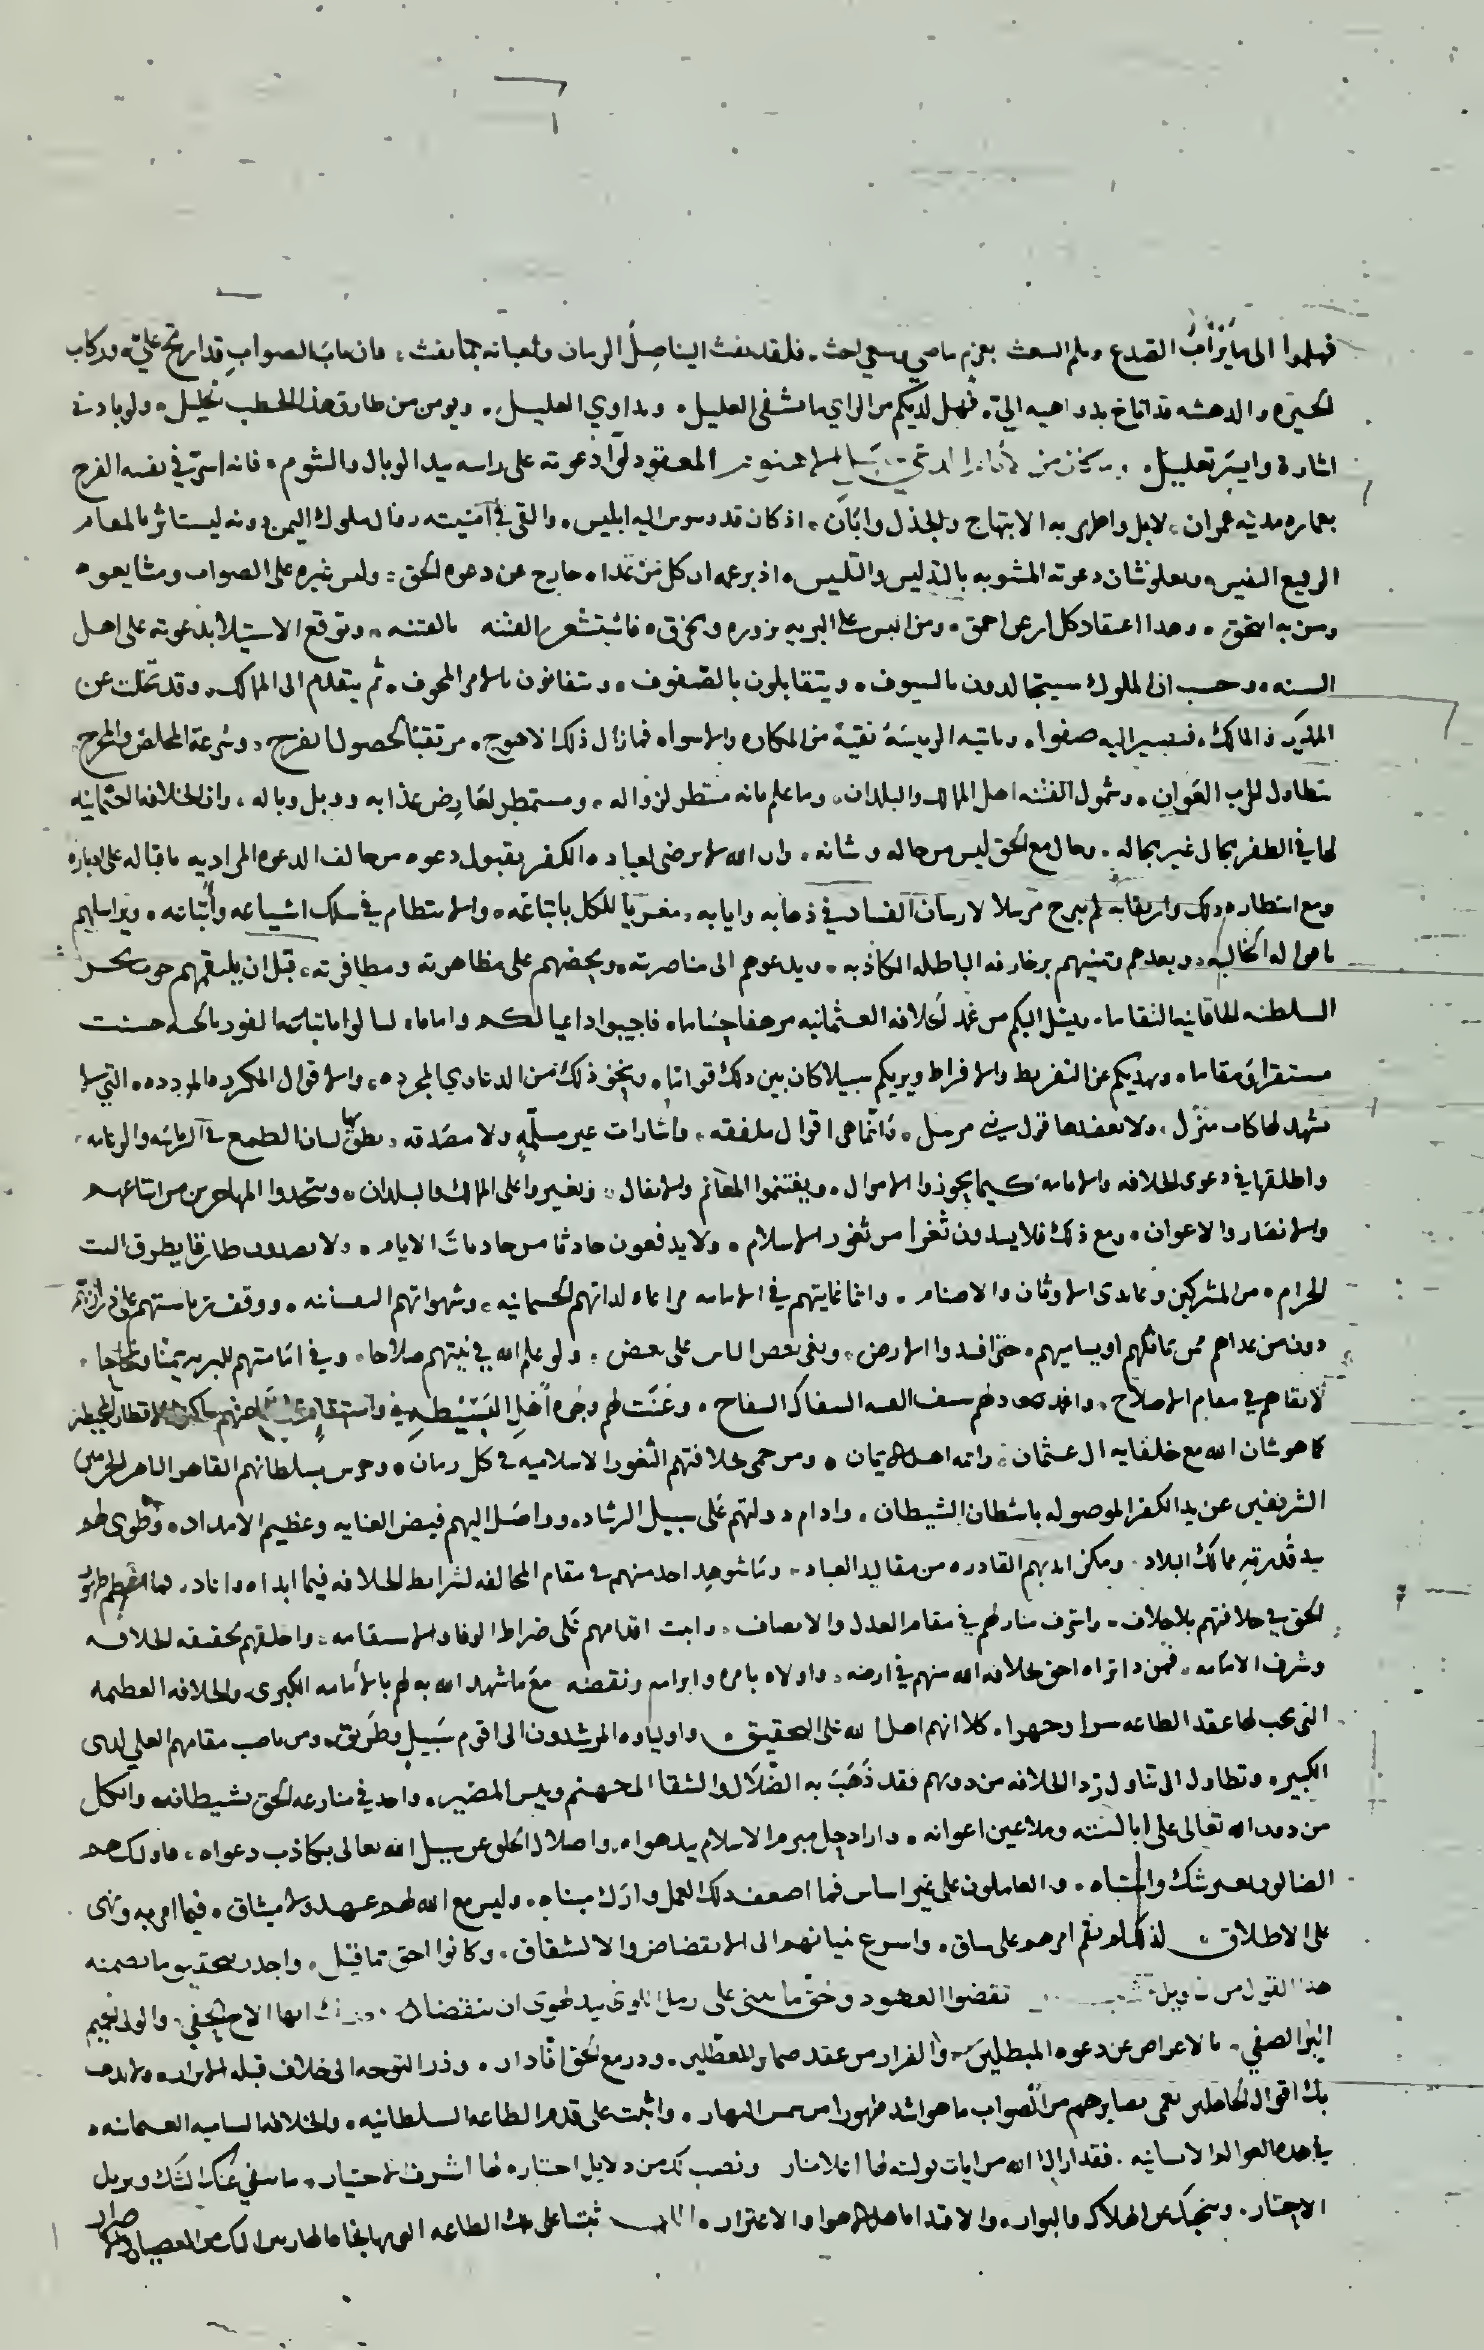 فهلموا الى ما يراب الصدع ويلم الشعث بعزم ماضي وسعي لحث، فلقد نفث الينا صل الزمان وثعبانه بما نفث، فان باب الصواب قد ارتج علي، وركاب
الحيرة والدهشه قد اناخ بدواهيه الي، فهل لديكم من الراي ما يشفى العليل، ويداوي الغليل، ويومن من طارق هذا الخطب الجليل، ولو بادنى
اشارة وايسر تعليل، المعقود لوا دعوته على راسه بيد الوبال والشوم، فانه اسر في نفسه الفرح
بعماره مدينه عمران، لابل واظهر به الابتهاج والجذل وابان، اذ كان قد وسوس اليه ابليس، والقى في امنيته وقال ملوك اليمن دونه ليستاثر بالمقام
الرفيع النفيس، ويعلو شان دعوته المشوبه بالتدليس والتلبيس، اذ بزعمه ان كل من عداه خارج عن دعوه الحق، وليس غيره على الصواب ومشايعوه
ومن به التحق، وهذا اعتقاد كل ارعن احمق، ومن لبس على البريه بزوره ومخرق، فاستشعر الفتنه بالفتنه، وتوقع الاستيلا بدعوته على اهل
السنه، وحسب ان الملوك سيتجالدون بالسيوف، ويتقابلون بالصفوف، ويتفانون بالامر المخوف، ثم يتقدم الى الممالك، وقد تخلت عن
المليك والمالك، فتصير اليه صفوا، وتاتيه الرياسة نقية من المكاره والاسوا، فمازال ذلك الاهوج، مرتقبا لحصول الفرج، وسرعة المخلص والمخرج
بتطاول الحرب العوان، وشمول الفتنه اهل الممالك والبلدان، وما علم بانه منتظر لزواله، ومستمطر لعارض عذابه ووبل وباله، وان الخلافه العثمانيه
لها في الظفر مجال غير مجاله، وحال مع الحق ليس من حاله وشانه، وان الله لا يرضى لعباده الكفر بقبول دعوه من خالف الدعوه المراديه باقباله على ادباره
ومع انتظاره ذلك وارتقابه لم يبرح مرسلا لارسان الفساد في ذهابه وايابه، مغريا للكل باتباعه، والانتظام في سلك اشياعه واتباعه، ويراسلهم
باقواله الخالبه، ويعدهم ويمنيهم بزخارفه الباطله الكاذبه، ويدعوهم الى مناصرته، ويحضهم على مظاهرته ومظافرته، قبل ان يلتقمهم حوت بحر
السلطنه الخاقانيه التقاما، وينسل اليكم من غمد الخلافه العثمانيه مرهفا حساما، فاجيبوا داعيا لكم واماما، لتنالوا باتباعه الفوز بالجنه حسنت
مستقرا ومقاما، ويهديكم عن التفريط والافراط ويريكم سبيلا كان بين ذلك قواما، ونحو ذلك من الدعاوي المجرده، والاقوال المكرره المردده، التي لا
يشهد لها كتاب منزل، ولا يعضدها قول نبي مرسل، وانما هي اقوال ملفقه، واشارات غير مسلمة ولا مصدقه، نطق بها لسان الطمع في الرياسه والزعامه،
واطلقها في دعوى الخلافه والامامه، كيما يحوزوا الاموال، ويغتنموا المغانم والانفال، ويغيروا على الممالك والبلدان، ويتخذوا المهاجرين من اتباعهم
والانصار والاعوان، ومع ذلك فلا يسدون ثغرا من ثغور الاسلام، ولا يدفعون حادثا من حادثات الايام، ولا يصدون طارقا يطرق البيت
الحرام، من المشركين وعابدى الاوثان والاصنام، وانما غايتهم في الامامه مراعاه لذاتهم الجسمانيه، وشهواتهم النفسانيه، ووقف رياستهم على ذرياتهم
دون من عداهم ممن يماثلهم او يساميهم، حتى افسدوا الارض، وبغى بعض الناس على بعض، ولو علم الله في نيتهم صلاحا، وفي امامتهم للبريه يمنا ونجاحا،
لابقاهم في مقام الاصلاح، واغمد دونهم سيف الفتنه السفاك السفاح، وعنت لهم وجوه اهل البسيطه
كما هو شان الله مع خلفايه ال عثمان، وايمه اهل الايمان، ومن حمى بخلافتهم الثغور الاسلاميه في كل زمان، وحرس بسلطانهم القاهر الباهر الحرمين
الشريفين عن يد الكفر الموصوله باشطان الشيطان، وادام دولتهم على سبيل الرشاد، وواصل اليهم فيض العنايه وعظيم الامداد، وطوى لهم
بيد قدرته ممالك البلاد، ومكن ايديهم القادره من مقاليد العباد، وما شوهد احد منهم في مقام المخالفه لشرايط الخلافه فيما ابداه واعاد،
الحق في خلافتهم بلا خلاف، واشرف منارهم في مقام العدل والانصاف، واثبت اقدامهم على صراط الوفا والاستقامه، واخلقهم بحقيقه الخلافه
وشرف الامامه، فمن ذا تراه احق بخلافه الله منهم في ارضه، واولاه بامره وابرامه ونقضه مع ما شهد الله به لهم بالامامه الكبرى والخلافه العظيمه
التي يجب لها عقد الطاعه سرا وجهرا، كلا انهم اهل الله على التحقيق، واولياوه المرشدون الى اقوم سبيل وطريق، ومن ناصب مقامهم العلي لدى
الكبير، وتطاول الى تناول رد الخلافه من دونهم فقد ذهب به الضلال والشقا الى جهنم وبيس المصير، واحد في منازعه الحق بشيطانه، واتكل
من دون الله تعالى على ابالسته وملاعين اعوانه، واراد حل مبرم الاسلام بيد هواه، واضلال الخلق عن سبيل الله تعالى بكاذب دعواه، فاولئك هم
الضالون بغير شك واشتباه، والعاملون على غير اساس فما اضعف ذلك العمل وارك مبناه، وليس مع الله لهم عهد ولا ميثاق، فيما امر به ونهى
على الاطلاق، لذلك لم يقم امرهم على ساق، واسرع بنيانهم الى الانقضاض والانشقاق، وكانوا احق بما قيل، واجدر بتحقيق ما تضمنه
هذا القول من تاويل نقضوا العهود وحق ما يبنى على رمل اللوى بيد الهوى ان ينقضا ايها الاخ الحفي، والولي الحميم
البر الصفي، بالاعراض عن دعوه المبطلين، والفرار من عقد ضماير المعطلين، ودر مع الحق اذا دار، وذر التوجه الى خلاف قبله المراد، ولا يذهب
بك اقوال الجاهلين بعمى بصايرهم من الصواب ما هو اشد ظهورا من شمس النهار، واثبت على قدم الطاعه السلطانيه، والخلافه الساميه العثمانيه،
في هذه العوالم الانسانيه، فقد اراك الله من ايات دولته لها اعلا منار ونصب لك من دلايل اختياره لها اشرف اختيار، ما ينفي عنك الشك ويزيل
الاحتيار، وينجيك من الهلاك والبوار، والاقتدا باهل الاهوا والاغترار، ثبتنا على تلك الطاعه